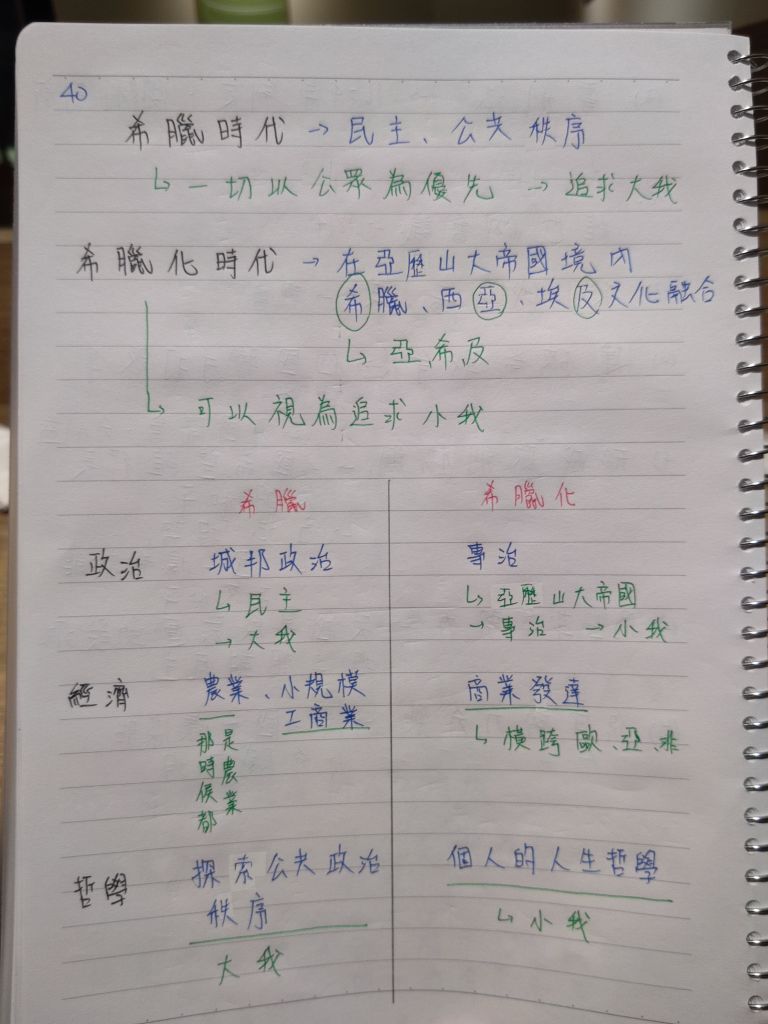 40
希臘時代 → 民主、公共秩序
↳ 一切以公眾為優先 → 追求大我
希臘化時代 → 在亞歷山大帝國境內
希臘、西亞、埃及文化融合
↳ 亞、希、及
↳ 可以視為追求小我
希臘 希臘化
政治 城邦政治 專治
↳ 民主 ↳ 亞歷山大帝國
→ 大我 → 專治 → 小我
經濟 農業、小規模 商業發達
工商業 ↳ 橫跨歐、亞、非
那時候都
是農業
哲學 探索公共政治 個人的人生哲學
秩序 ↳ 小我
大我